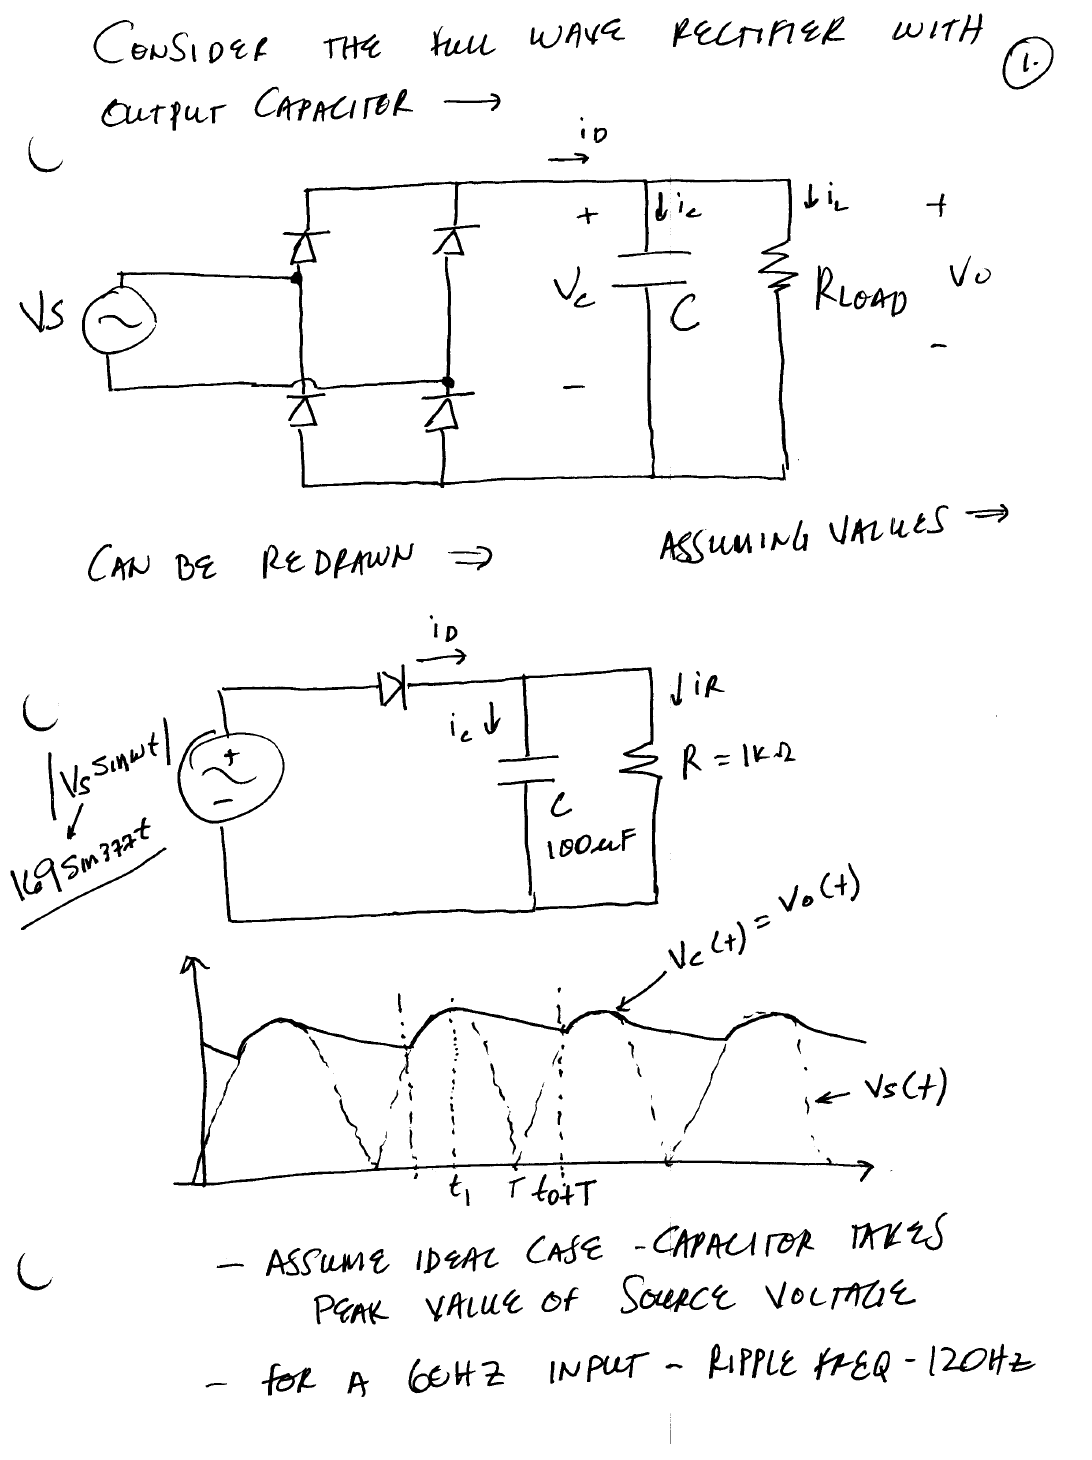 CONSIDER THE FULL WAVE RECTIFIER WITH
1.
OUTPUT CAPACITOR →
iD
+ ic iL +
VS Vc C RLOAD Vo
- -
CAN BE REDRAWN ⇒ ASSUMING VALUES ⇒
iD
ic iR
|Vs sinωt| + - R = 1KΩ
C
100uF
169 sin377t
Vc(t) = Vo(t)
Vs(t)
t1 T to+T
- ASSUME IDEAL CASE - CAPACITOR TAKES
PEAK VALUE OF SOURCE VOLTAGE
- FOR A 60HZ INPUT - RIPPLE FREQ - 120HZ